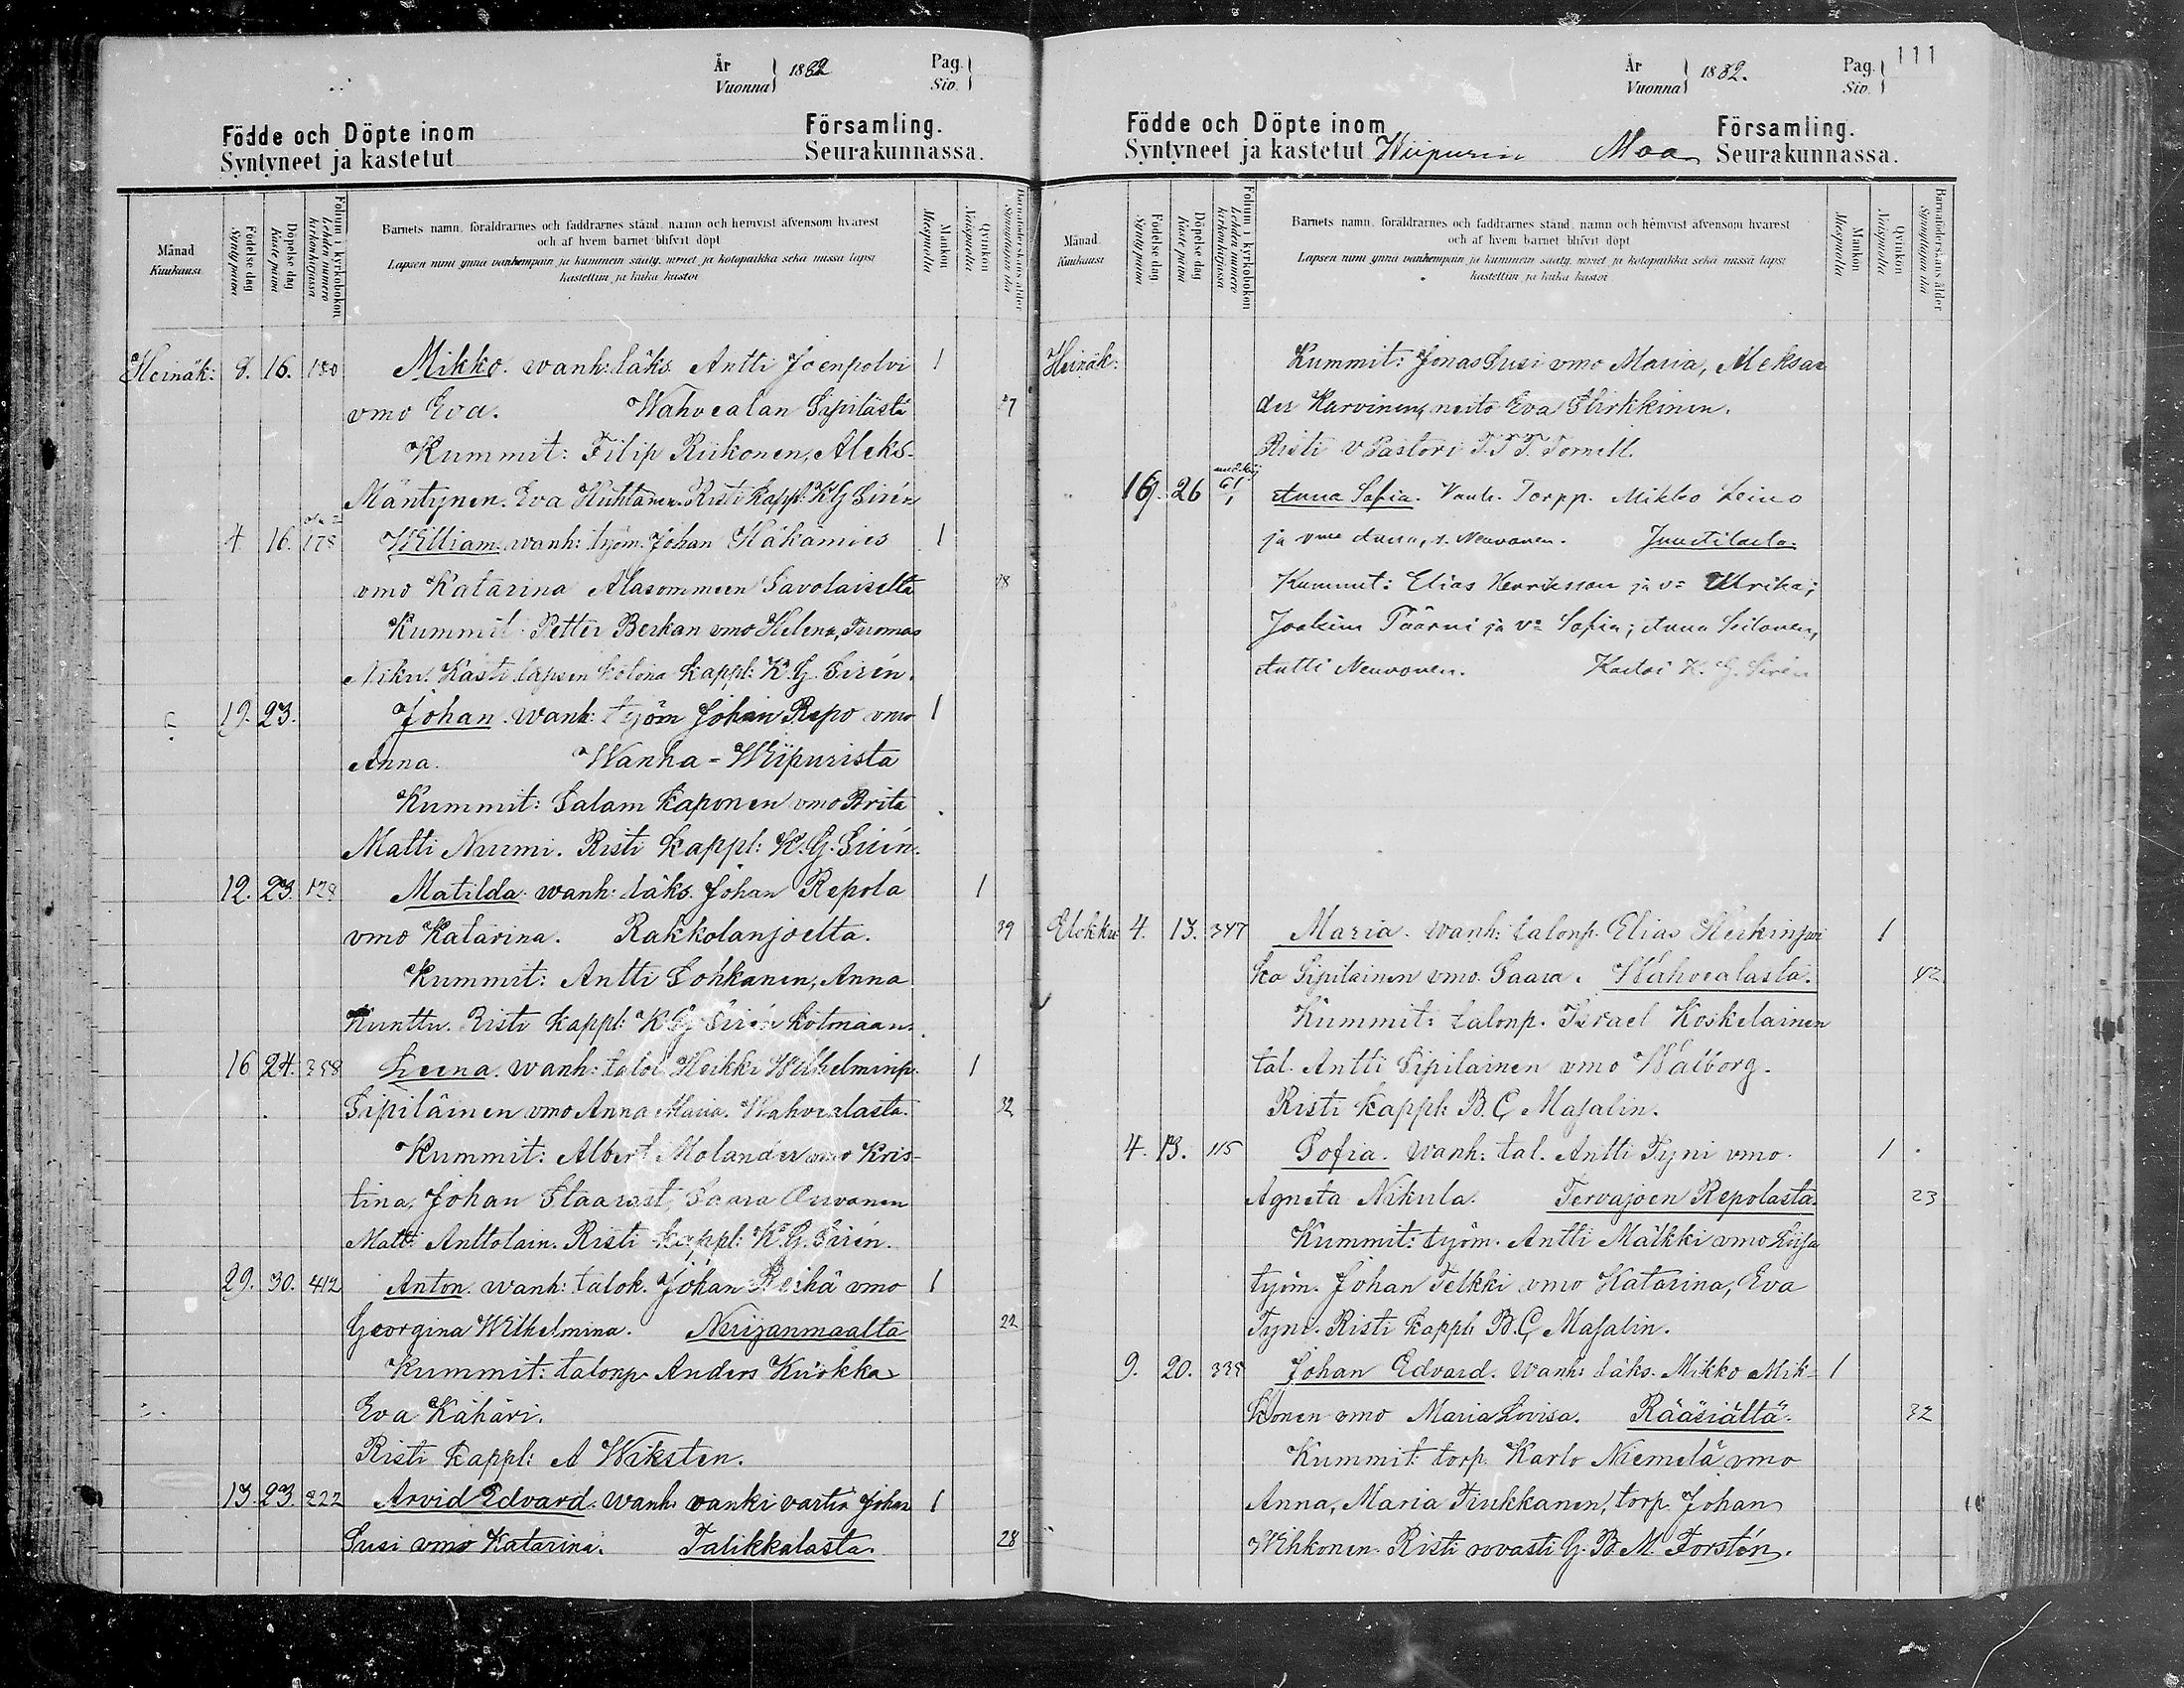 År
Vuonna
1882
Pag.
Siv.
Födde och Döpte inom
Församling.
Syntyneet ja kastetut
Seurakunnassa.
Månad
Kuukausi
Födelse dag
Synty päivä
Döpelse dag
Kaste päivä
Folium i kyrkoboken
Lehden numero kirkonkirjassa
Barnets namn, föräldrarnes och faddrarnes stånd, namn och hemvist äfvensom hvarest
och af hvem barnet blifvit döpt
Lapsen nimi ynnä vanhempain ja kummein sääty, nimet ja kotopaikka sekä missä lapsi
kastettiin ja kuka kastoi
Mankön
Miespuolia
Qvinkön
Naispuolia
Barnaföderskans ålder
Synnyttäjän ikä
Heinäk: 8. 16. 180 Mikko. wanh: läks. Antti Joenpolvi 1
vmo Eva. Wahvealan Sipilästä 27
Kummit: Filip Riikonen, Aleks.
Mäntynen. Eva Huhtanen. Risti kappl: K G Sirén
4. 16. 178 William. wanh: työm. Johan Häkämies 1
vmo Katarina Alasommeen Savolaiselta 28
Kummit: Petter Berkan vmo Helena, Tuomas
Niku. Kasti lapsen kotona kappl: K. G. Sirén.
19. 23. Johan. wanh: työm Johan Repo vmo 1
Anna. Wanha-Wiipurista
Kummit: Salam Kaponen vmo Brita
Matti Nurmi. Risti kappl: K. G. Sirén.
12. 23. 178 Matilda. wanh: läks. Johan Repola 1
vmo Katarina. Rakkolanjoelta. 39
Kummit: Antti Sohkanen, Anna
Kunttu. Risti kappl: K G Sirén kotonaan.
16 24. 358 Leena. wanh: talol Heikki Wilhelminp. 1
Sipiläinen vmo Anna Maria. Wahvealasta. 32
Kummit: Albert Molander vmo Kris-
tina, Johan Staarast, Saara Orvanen
Matti Anttolain. Risti kappl: K. G. Sirén.
29. 30. 412 Anton. wanh: talok. Johan Reihä vmo 1
Georgina Wilhelmina. Nurijanmaalta 22
Kummit: talonp. Anders Kurkka
Eva Kähäri.
Risti kappl: A Wiksten.
13. 23. 222 Arvid Edvard. wanh: vanki vartia Johan 1
Susi vmo Katarina. Talikkalasta. 28
111
År
Vuonna
1882.
Pag.
Siv.
Födde och Döpte inom
Församling.
Syntyneet ja kastetut Wiipurin Maa Seurakunnassa.
Månad
Kuukausi
Födelse dag
Synty päivä
Döpelse dag
Kaste päivä
Folium i kyrkoboken
Lehden numero kirkonkirjassa
Barnets namn, föräldrarnes och faddrarnes stånd, namn och hemvist äfvensom hvarest
och af hvem barnet blifvit döpt
Lapsen nimi ynnä vanhempain ja kummein sääty, nimet ja kotopaikka sekä missä lapsi
kastettiin ja kuka kastoi
Mankön
Miespuolia
Qvinkön
Naispuolia
Barnaföderskans ålder
Synnyttäjän ikä
Heinäk: Kummit: Jonas Susi vmo Maria, Aleksan
der Karvinen, neito Eva Pirkkinen.
Risti v Pastori T. T. T. Tornell.
16. 26 61 Anna Sofia. Vanh. Torpp. Mikko Leino
ja vmo Anna, s. Neuvonen. Juustilasta.
Kummit: Elias Henriksson ja vo Ulrika;
Joakim Päärni ja vo Sofia; Anna Seilonen,
Antti Neuvonen. Kastoi K. G. Sirén
Elokku 4. 13. 347 Maria. wanh: talonp. Elias Heikinpoi 1
ka Sipiläinen vmo Saara. Wahvealasta. 42
Kummit: talonp. Israel Koskelainen
tal. Antti Sipilainen vmo Walborg.
Risti kappl: B. C Masalin.
4. 13. 115 Sofia. wanh: tal. Antti Tyni vmo 1
Agneta Nikula. Tervajoen Repolasta. 23
Kummit: työm. Antti Mälkki vmo Liisa
työm. Johan Telkki vmo Katarina, Eva
Tyni. Risti kappl: B. C Masalin.
9. 20. 338 Johan Edvard. wanh: läks. Mikko Mik- 1
konen vmo Maria Lovisa. Rääsiältä. 32
Kummit: torp. Karlo Niemelä vmo
Anna, Maria Tiukkanen, torp. Johan
Wihkonen. Risti rovasti G. B. M. Forstén.